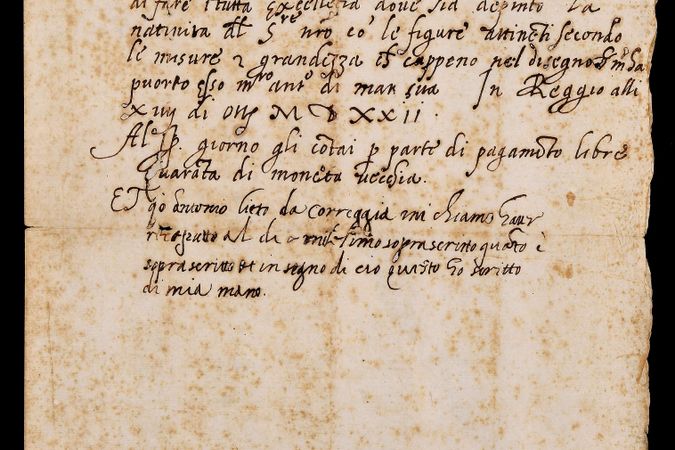 di fare i tutta Excelletia dove sia depinto la
nativita dl Sre nro cō le figure attineti secondo
le misure & grandezza ch cappeno nel disegno
puorto esso mro anto di man sua In Reggio alli
di MDXXII
Al giorno gli cotai p parte di pagamto libre
Quarata di moneta vecchia.
Et io Antonio lieto da Correggia mi chiamo haver
receputto al di & milesimo soprascritto quāto è
soprascritto et in segno di cio questo ho scritto
di mia mano.